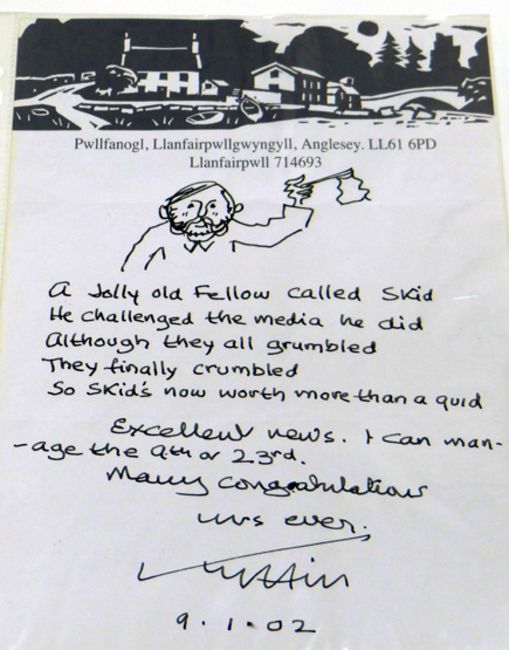 Pwllfanogl, Llanfairpwllgwyngyll, Anglesey. LL61 6PD
Llanfairpwll 714693
A Jolly old Fellow called Skid
He challenged the media he did
Although they all grumbled
They finally crumbled
So Skid's now worth more than a quid
Excellent news. I can man-
-age the 9th or 23rd.
Many congratulations
urs ever.
9.1.02